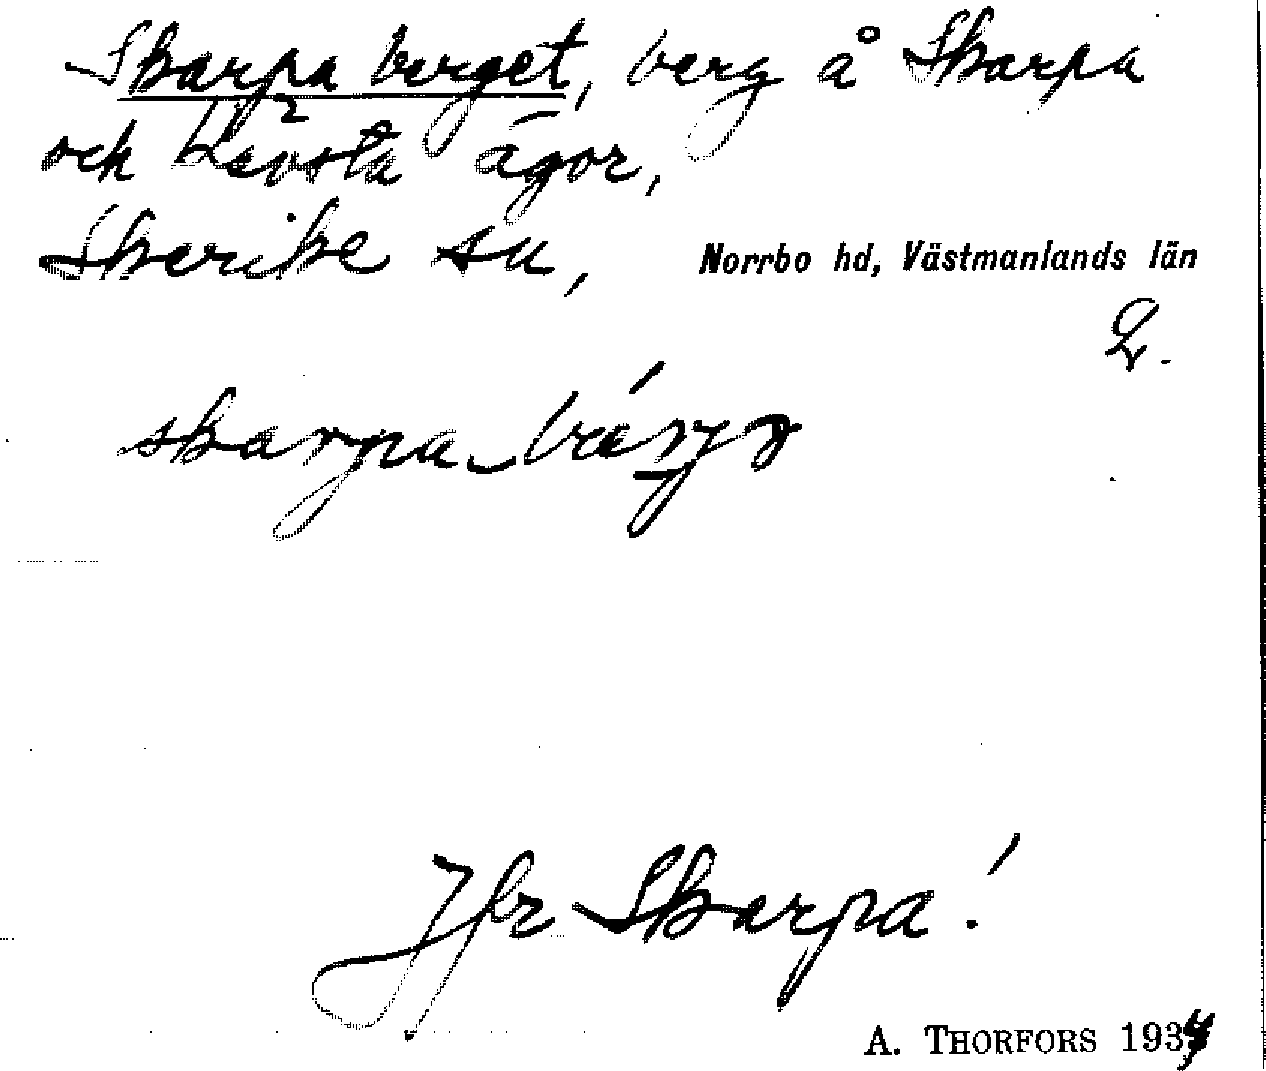 Skarpa berget, berg å Skarpa
och Hävsta ägor,
Skerike sn, Norrbo hd, Västmanlands län
2.
skarpa
Jfr Skarpa!
A. THORFORS 1934